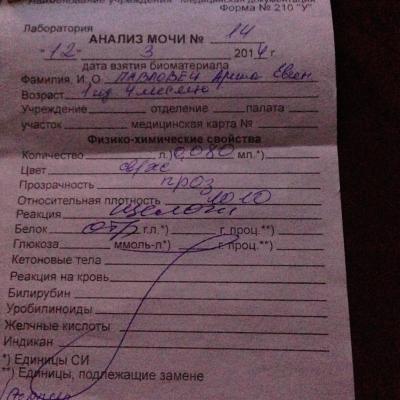 Наименование учреждения Медицинская документация
Форма № 210 "У"
Лаборатория
АНАЛИЗ МОЧИ № 14
"12" 3 2014 г.
дата взятия биоматериала
Фамилия, И, О
Возраст 1 год 4 месяца
Учреждение отделение палата
участок медицинская карта №
Физико-химические свойства
Количество л.) 0,080 мл.*)
Цвет с/ж
Прозрачность проз
Относительная плотность 1010
Реакция щелочн
Белок отр г.л.*) г. проц.**)
Глюкоза ммоль-л.*) г. проц.**)
Кетоновые тела
Реакция на кровь
Билирубин
Уробилиноиды
Желчные кислоты
Индикан
*) Единицы СИ
**) Единицы, подлежащие замене